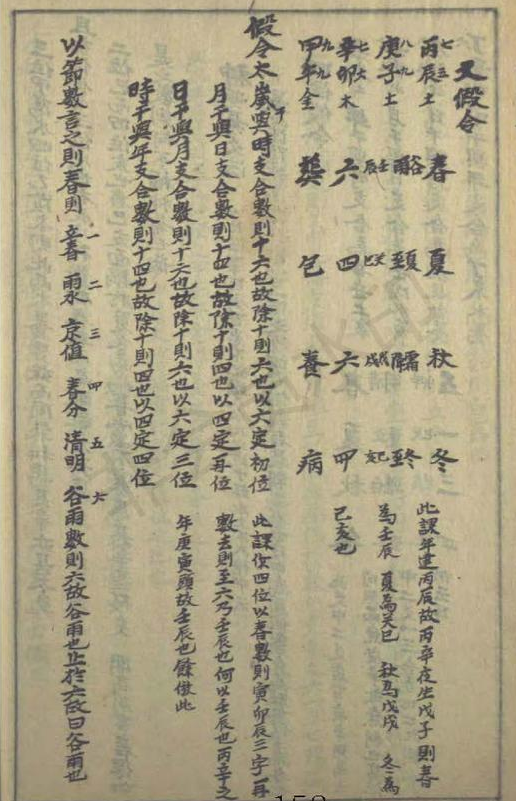 又假令
七三
丙辰土 春 夏 秋 冬 此課年建丙辰故丙辛夜生戊子則春
八九
庚子土 谷雨 夏至 霜 冬至 為壬辰 夏為癸巳 秋為戊戌 冬為
壬辰 癸巳 戊戌
七六
辛卯木 六 四 六 四 己亥也
九九
甲午金 葬 包 養 病
假令太歲干與時支合數則十六也故除十則六也以六定初位 此課俱四位以春數則寅卯辰三字再
月干與日支合數則十四也故除十則四也以四定再位 數去則至六乃壬辰也何以壬辰也丙辛之
日干與月支合數則十六也故除十則六也以六定三位 年庚寅頭故壬辰也餘倣此
時干與年支合數則十四也故除十則四也以四定四位
一 二 三 四 五 六
以節數言之則春則立春 雨水 京值 春分 清明 谷雨數則六故谷雨也止於六故曰谷雨也